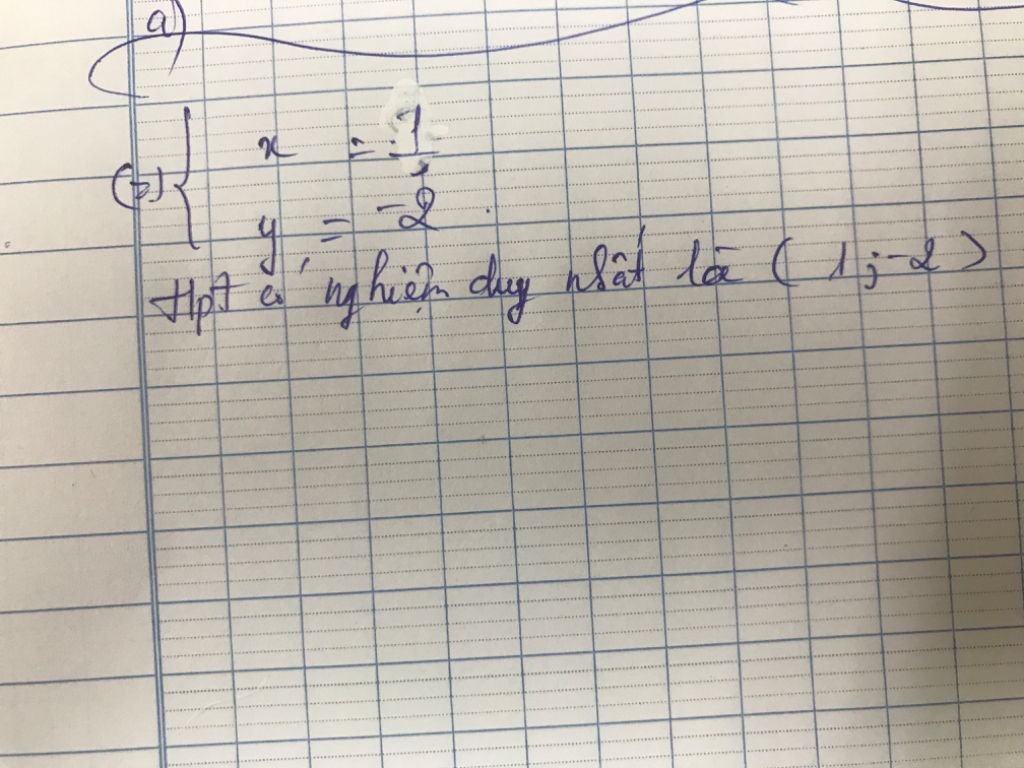 a)
(=) { x = 1
y = -2
Hpt có nghiệm duy nhất là ( 1 ; -2 )